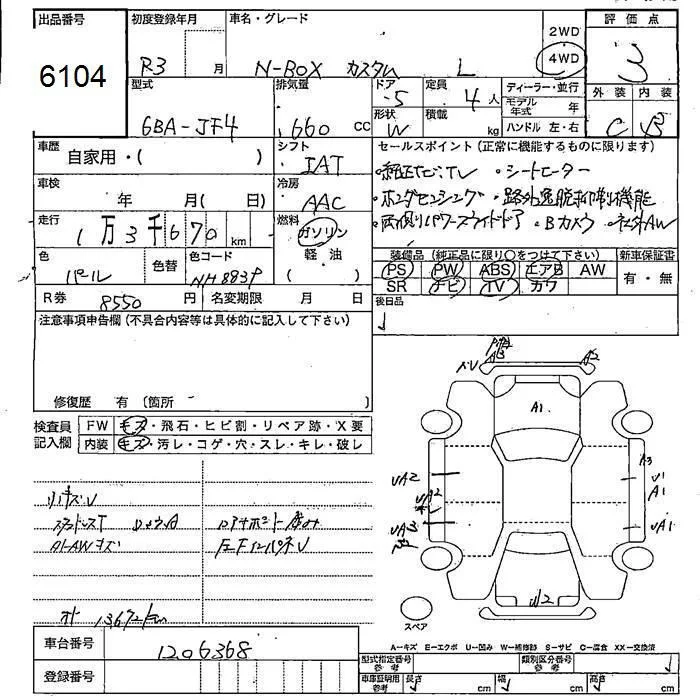 出品番号
6104
初度登録年月
R3 月
車名・グレード
N-BOX カスタム L
2WD
4WD
評価点
3
型式
6BA-JF4
排気量
660 CC
ドア
5
形状
W
定員
4 人
積載
kg
ディーラー・並行
モデル年式 年
ハンドル 左・右
外装 内装
C B
車歴
自家用・( )
シフト
IAT
セールスポイント (正常に機能するものに限ります)
・純正ナビ,TV ・シートヒーター
・ホンダセンシング ・路外逸脱抑制機能
・両側パワースライドドア ・Bカメラ ・社外AW
車検
年 月( 日)
冷房
AAC
走行
1万3千670 km
燃料
ガソリン
軽油
( )
色
パール
色替
色コード
NH883P
装備品 (純正品に限り○をつけて下さい)
PS PW ABS エアB AW
SR ナビ TV カワ
新車保証書
有・無
R券 8550 円
名変期限 月 日
後日品
注意事項申告欄 (不具合内容等は具体的に記入して下さい)
修復歴 有 (箇所 )
検査員記入欄
FW キズ・飛石・ヒビ割・リペア跡・X要
内装 キズ・汚レ・コゲ・穴・スレ・キレ・破レ
AW キズ
13672km
A3 A2
A1
UA2
UA2
UA3
A3
U1
A1
UA1
U2
スペア
A-キズ E-エクボ U-凹み W-補修跡 S-サビ C-腐食 XX-交換済
車台番号
1206368
登録番号
型式指定番号 参考
類別区分番号 参考
車庫証明用 参考
長さ cm 幅 cm 高さ cm